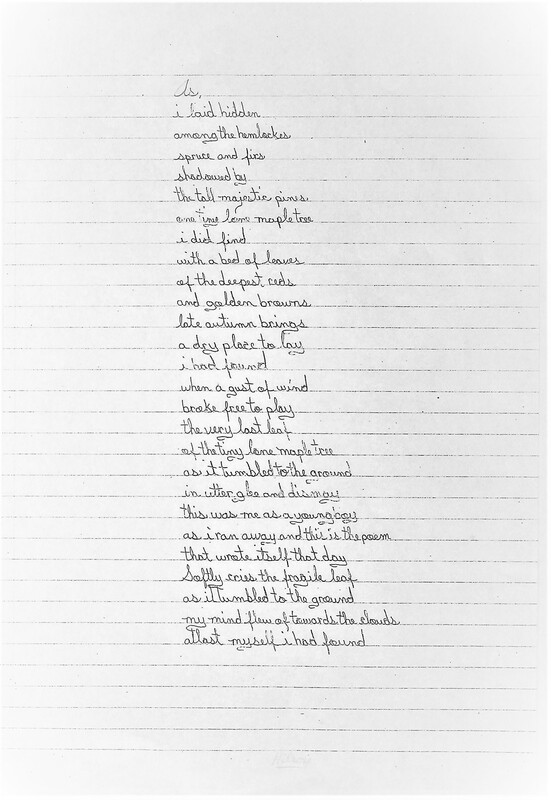 As,
i laid hidden
among the hemlockes
spruce and firs
shadowed by
the tall majestic pines
one tiny lone maple tree
i did find
with a bed of leaves
of the deepest reds
and golden browns
late autumn brings
a dry place to lay
i had found
when a gust of wind
broke free to play
the very last leaf
of the tiny lone maple tree
as it tumbled to the ground
in utter glee and dismay
this was me as a young boy
as i ran away and this is the poem
that wrote itself that day
Softly cries the fragile leaf
as it tumbled to the ground
my mind flew of towards the clouds
atlast myself i had found